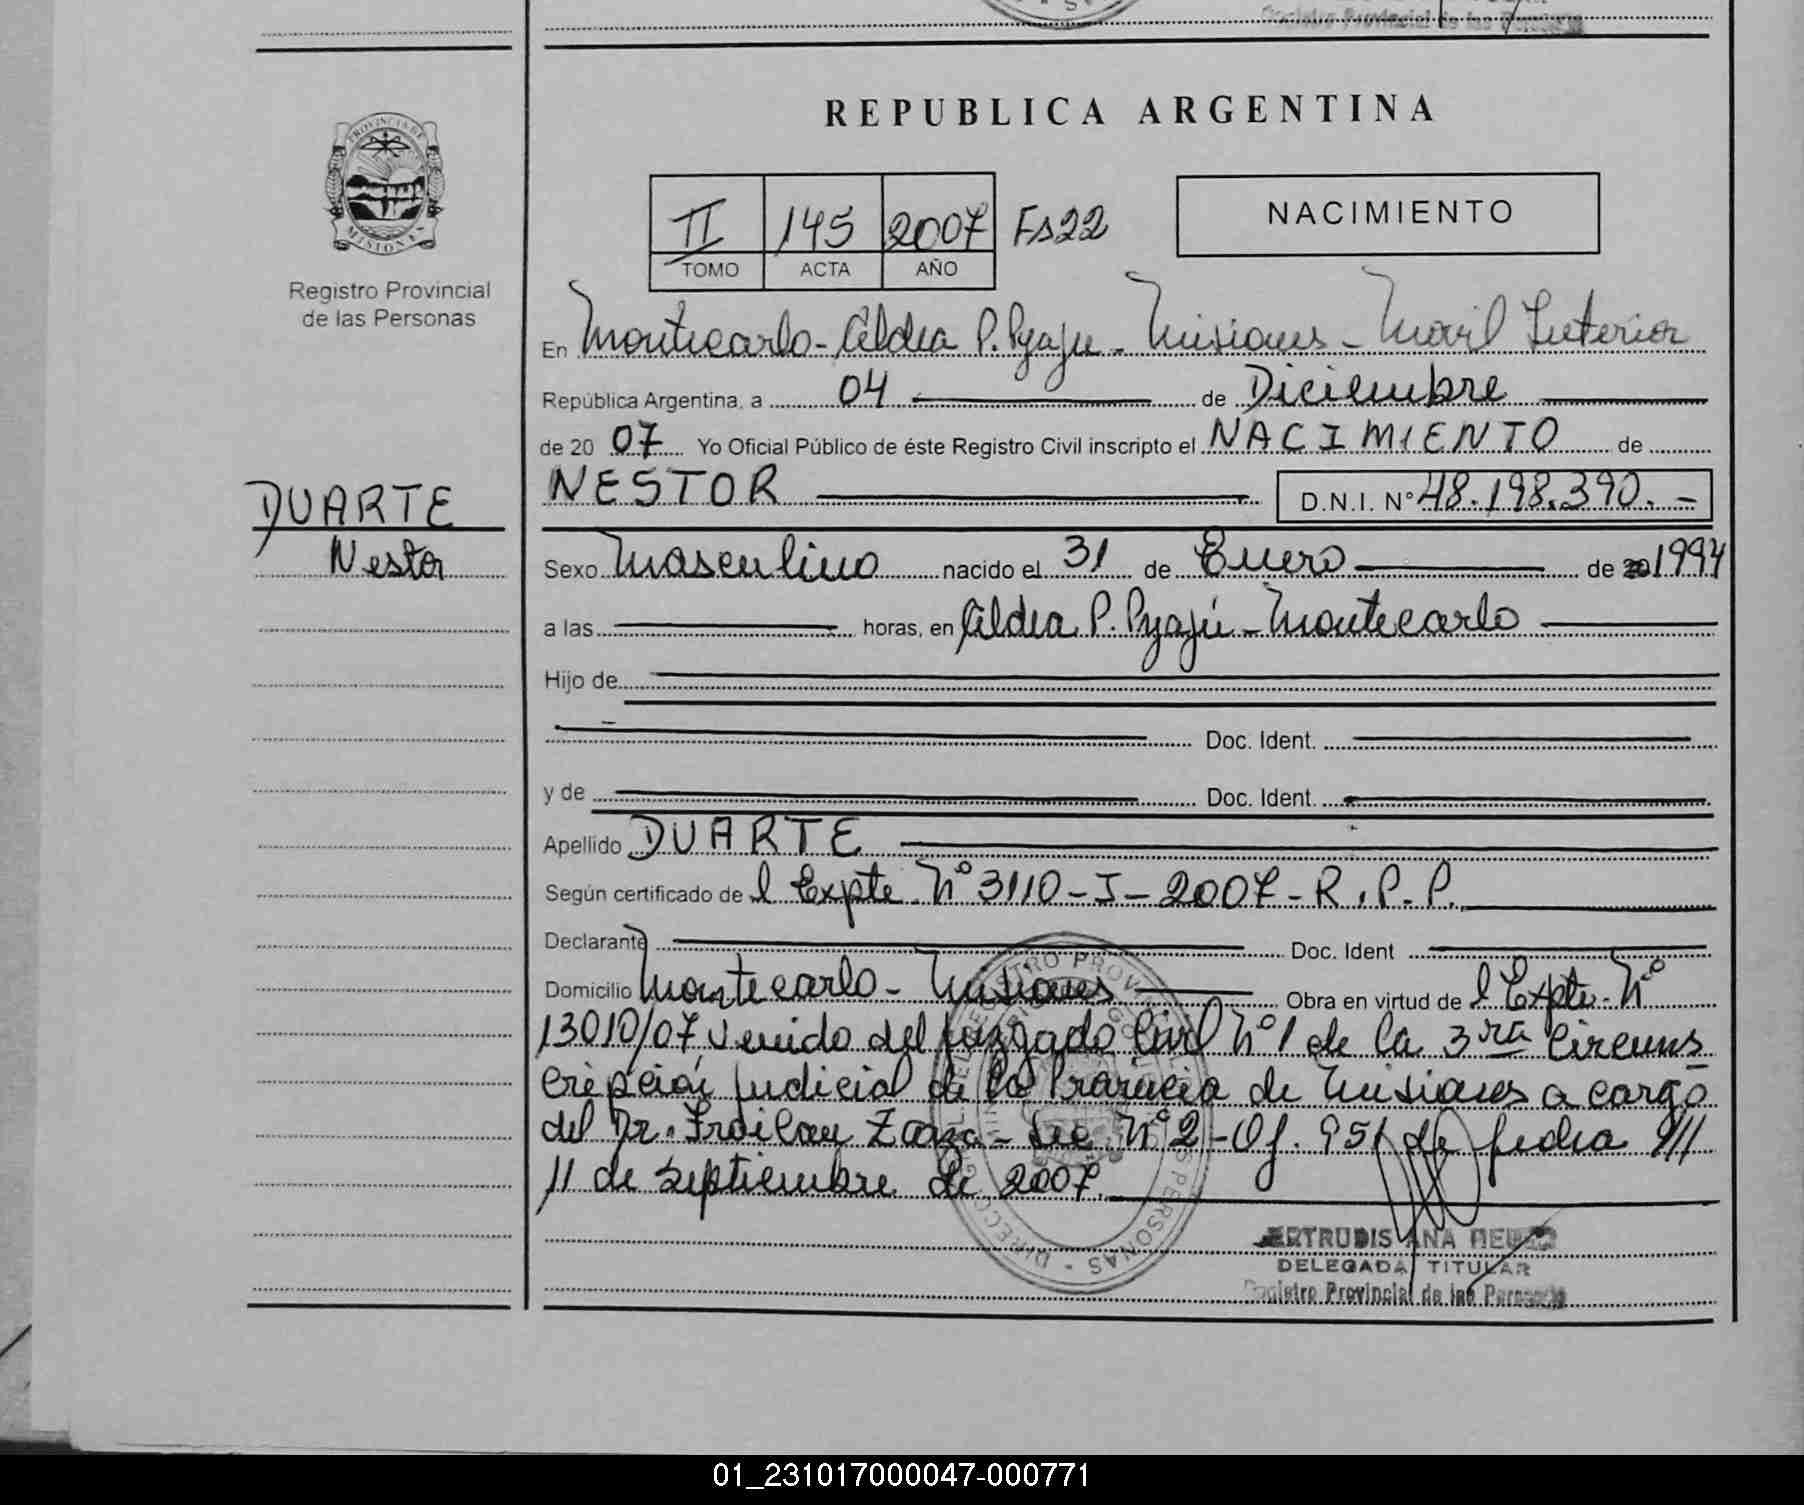 Registro Provincial de las Personas
REPUBLICA ARGENTINA
PROVINCIA DE MISIONES
Registro Provincial
de las Personas
II 145 2007 Fs 22
TOMO ACTA AÑO
NACIMIENTO
En Montecarlo - Aldea P. Pyajú - Misiones - Movil Interior
República Argentina, a 04 de Diciembre
de 20 07 Yo Oficial Público de éste Registro Civil inscripto el NACIMIENTO de
DUARTE
Nestor
NESTOR D.N.I. Nº 48.198.390.-
Sexo Masculino nacido el 31 de Enero de 1994
a las horas, en Aldea P. Pyajú - Montecarlo
Hijo de
Doc. Ident.
y de Doc. Ident.
Apellido DUARTE
Según certificado de l Expte. Nº 3110-J-2007-R.P.P.
Declarante Doc. Ident
Domicilio Montecarlo - Misiones Obra en virtud de l Expte. Nº
13010/07 venido del Juzgado Civil Nº 1 de la 3ra Circuns
cripción Judicial de la Provincia de Misiones a cargo
del Dr. Froilan Zarza - Sec. Nº 2 - Of. 951 de fecha
11 de Septiembre de 2007.
ANA
DELEGADA TITULAR
Registro Provincial de las Personas
01_231017000047-000771